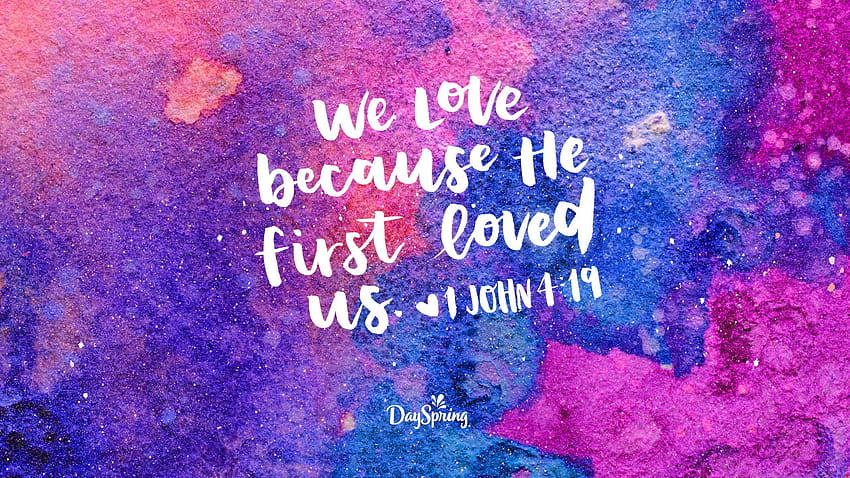 We Love
because He
first loved
us. ♥1 JOHN 4:19
DaySpring